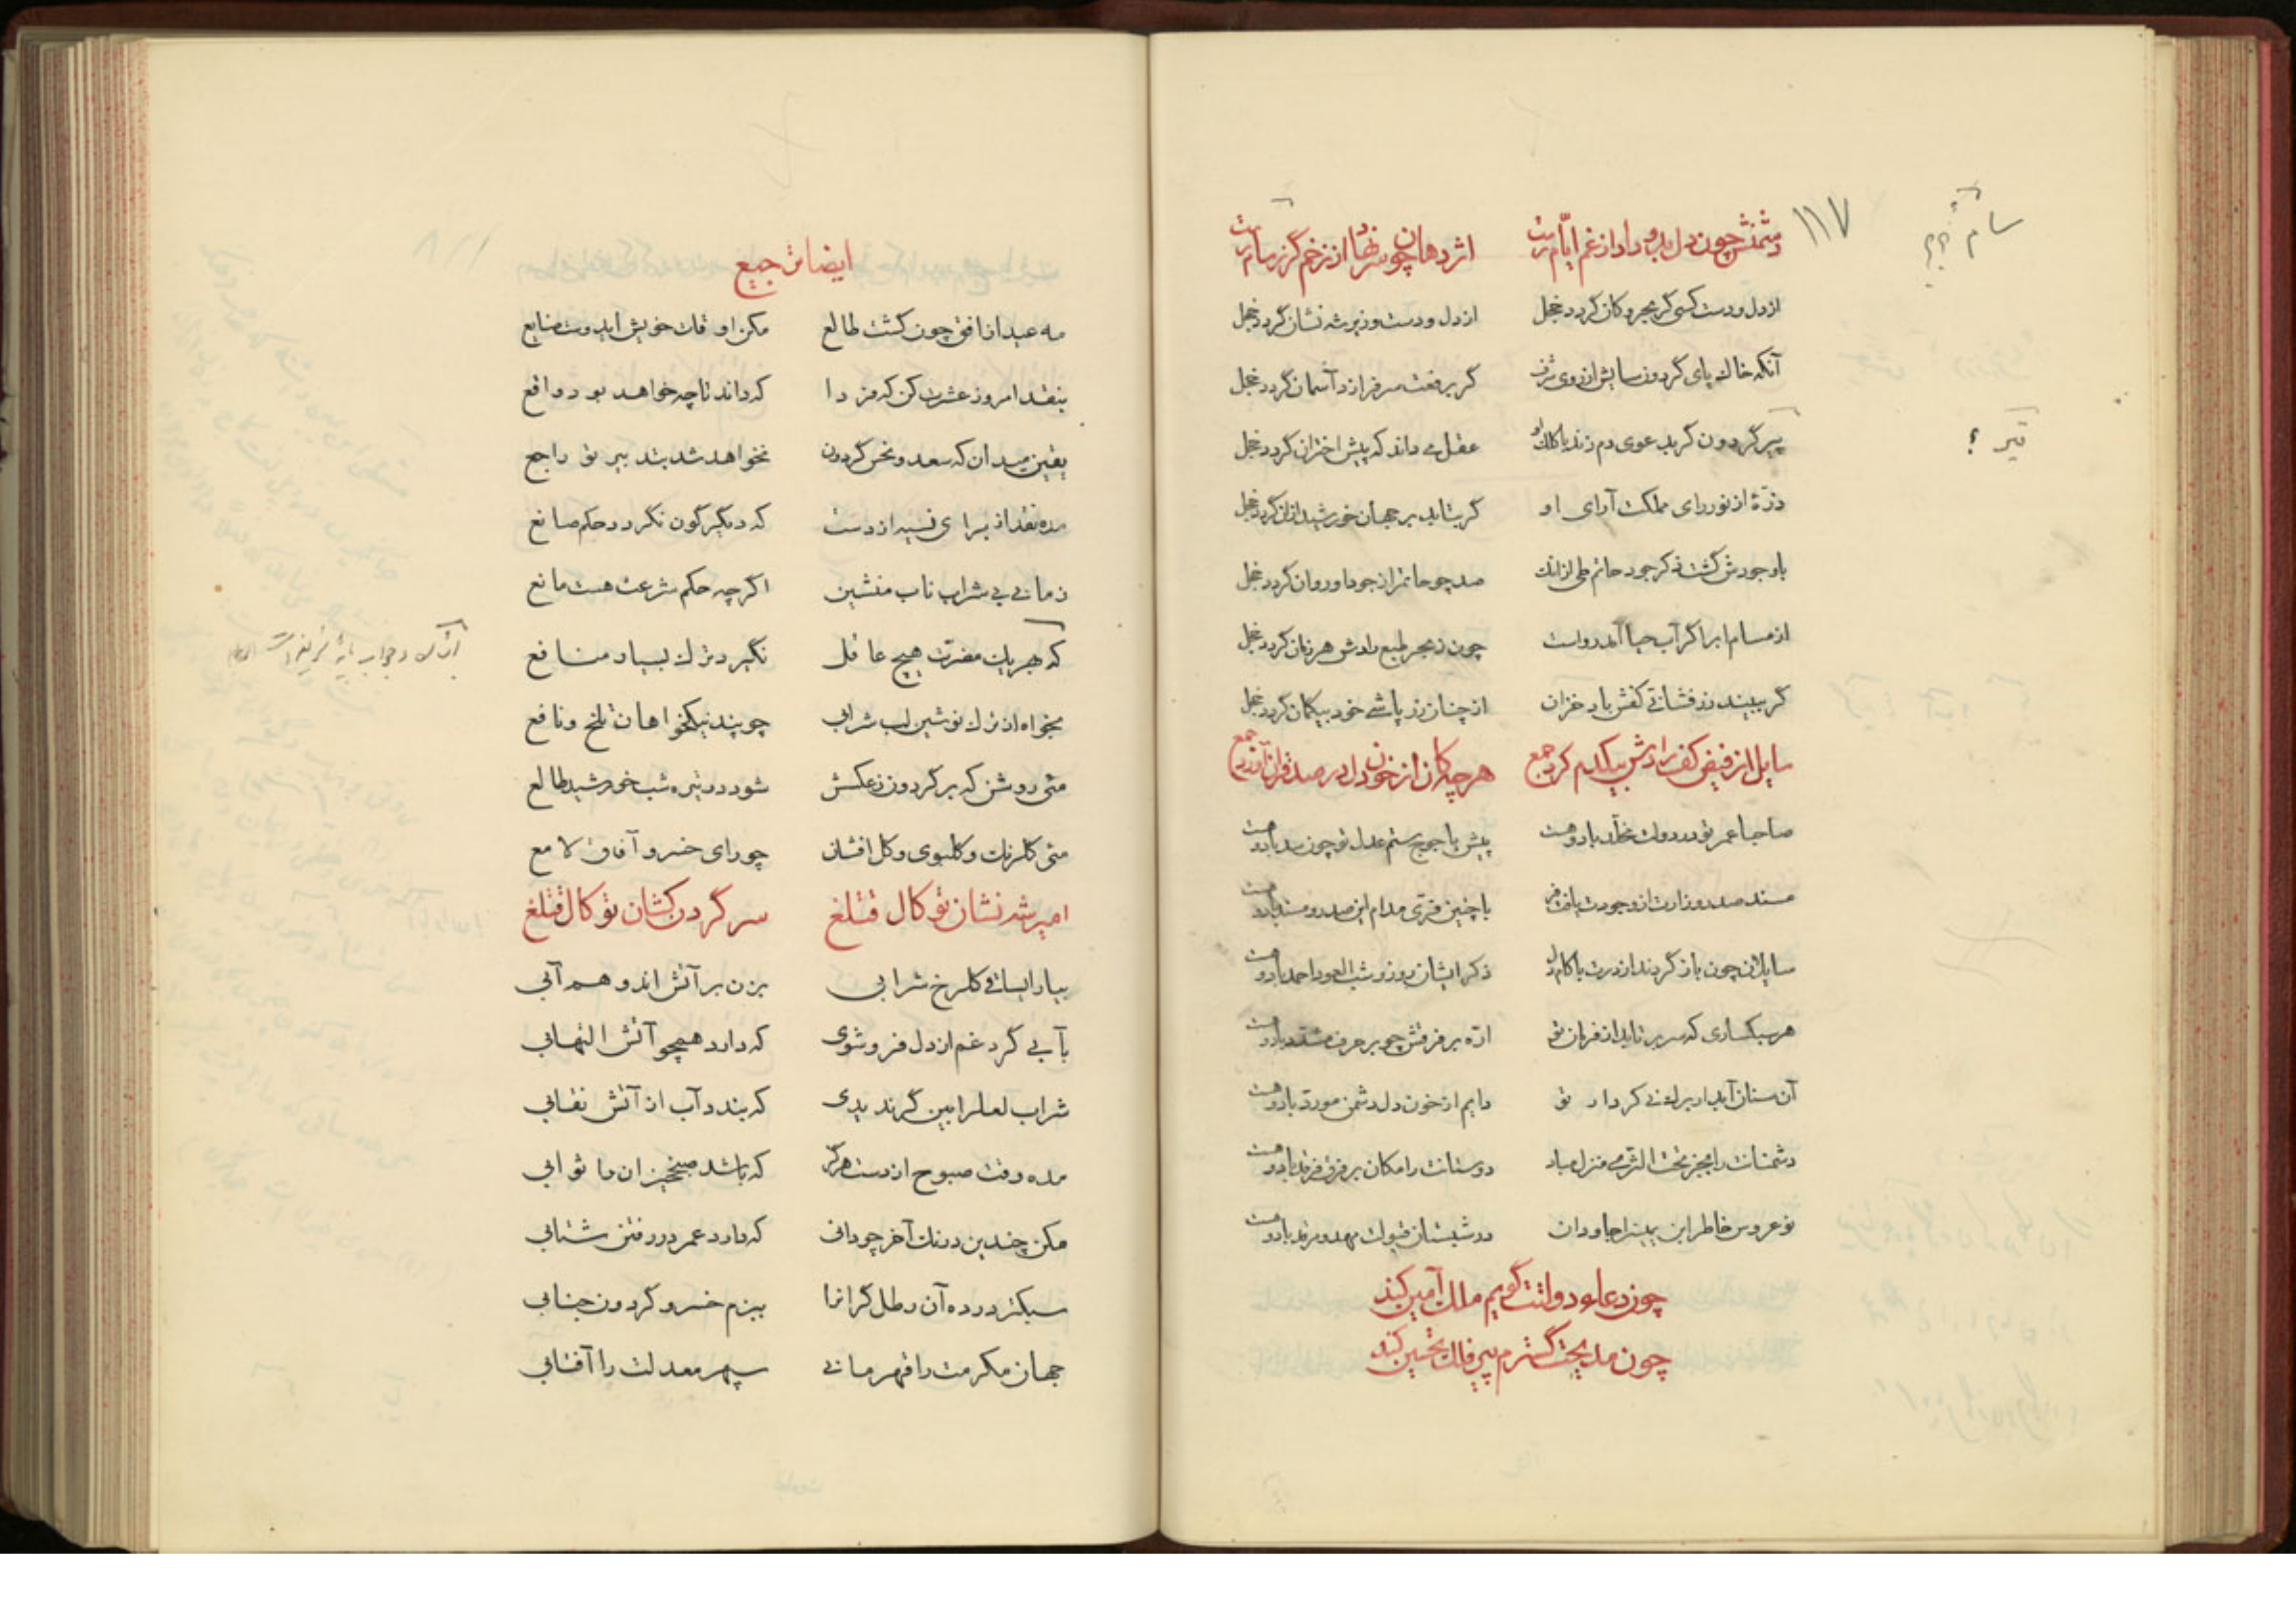 ۱۱۷
سام
دشمنش چون دل بدو داد از غم ایام رست
اژدها چون از زخم گرز سام رست
از دل و دست کسی کز بحر و کان گردد خجل
از دل و دست وزیر شه نشان گردد خجل
آنکه خاک پای گردون سایش از روی شرف
گر برفعت سرفرازد آسمان گردد خجل
تیر ؟
پیر گردون گر بدعوی دم زند با کلک او
عقل می داند که پیش اختران گردد خجل
ذرّهٔ از نور رای مملکت آرای او
گر بتابد بر جهان خورشید ازان گردد خجل
با وجودش گشت ذکر جود حاتم طی ازانک
صد چو حاتم از جود او روان گردد خجل
از مسام ابر اگر آب حیا آمد رواست
چون ز بحر طبع رادش هر زمان گردد خجل
گر ببیند زرفشانی کفش باد خزان
از چنان زر پاشی خود بیکمان گردد خجل
سایل از فیض کف رادش بیکدم کرد جمع
هر چه کان از خون دل در صد قران آورد جمع
صاحبا عمر تو در دولت مخلد باد و هست
پیش یاجوج ستم عدل تو چون سد باد و هست
مسند صدر وزارت از وجودت یافت فر
با چنین فرّی مدام این صدر و مسند باد و هست
سایلان چون باز گردند از درت با کام دل
ذکر ایشان روز و شب العود احمد باد و هست
هر سبکساری که سر برتابد از فرمان تو
ارّه بر فرقش چو بر حرف مشدد باد و هست
آن سنان آبدار برک نی کردار تو
دایم از خون دل دشمن مورد باد و هست
دشمنانت را بجز تحت الثری منزل مباد
دوستانت را مکان بر فرق فرقد باد و هست
نوعروس خاطر ابن یمین را جاودان
در شبستان قبولت مهد و مرقد باد و هست
چون دعاء دولتت گویم ملک آمین کند
چون مدیحت گسترم پیر فلک تحسین کند
ایضا ترجیع
مه عید از افق چون گشت طالع
مکن اوقات خویش ایدوست ضایع
بنقد امروز عشرت کن که فردا
که داند تا چه خواهد بود واقع
یقین میدان که سعد و نحس گردون
نخواهد شد بتدبیر تو راجع
مده نقد از برای نسیه از دست
که دیگرگون نگردد حکم صانع
زمانی بی شراب ناب منشین
اگر چه حکم شرعت هست مانع
که بهر یک مضرت هیچ عاقل
نگیرد ترک بسیار منافع
بخواه از ترک نوشین لب شرابی
چو پند نیکخواهان تلخ و نافع
میی روشن که بر گردون ز عکسش
شود در تیره شب خورشید طالع
میی گلرنک و گلبوی و گل افشان
چو رای خسرو آفاق لامع
امیر شه نشان توکال قتلغ
سر گردن کشان توکال قتلغ
بیار ای ساقی گلرخ شرابی
بزن بر آتش اندوهم آبی
بآبی گرد غم از دل فروشوی
که دارد همچو آتش التهابی
شراب لعل را بین گر ندیدی
که بندد آب از آتش نقابی
مده وقت صبوح از دست هرگز
که باشد صبحخیزان را ثوابی
مکن چندین درنک آخر چو دانی
که دارد عمر در رفتن شتابی
سبکتر در ده آن رطل گران را
ببزم خسرو گردون جنابی
جهان مکرمت را قهرمانی
سپهر معدلت را آفتابی